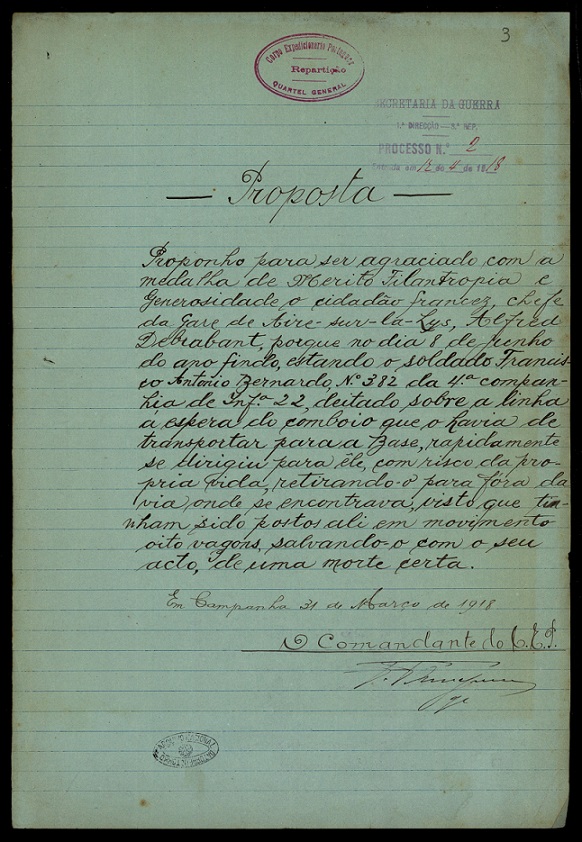 3
Corpo Expedicionario Portuguez
Repartição
QUARTEL GENERAL
SECRETARIA DA GUERRA
1.ª DIRECÇÃO — 3.ª REP.
PROCESSO N.º 2
Entrada em 12 de 4 de 1918
— Proposta —
Proponho para ser agraciado com a
medalha de Merito Filantropia e
Generosidade o cidadão francez, chefe
da Gare de Aire-sur-la-Lys, Alfred
Debrabant, porque no dia 8 de junho
do ano findo, estando o soldado Francis-
co Antonio Bernardo, N.º 382 da 4.ª compan-
hia de Inf.ª 22, deitado sobre a linha
a espera do comboio que o havia de
transportar para a Base, rapidamente
se dirigiu para êle, com risco da pro-
pria vida, retirando-o para fóra da
via onde se encontrava, visto que tin-
nham sido postos ali em movimento
oito vagons, salvando-o com o seu
acto, de uma morte certa.
Em Campanha 31 de Março de 1918
O Comandante do C.E.P.